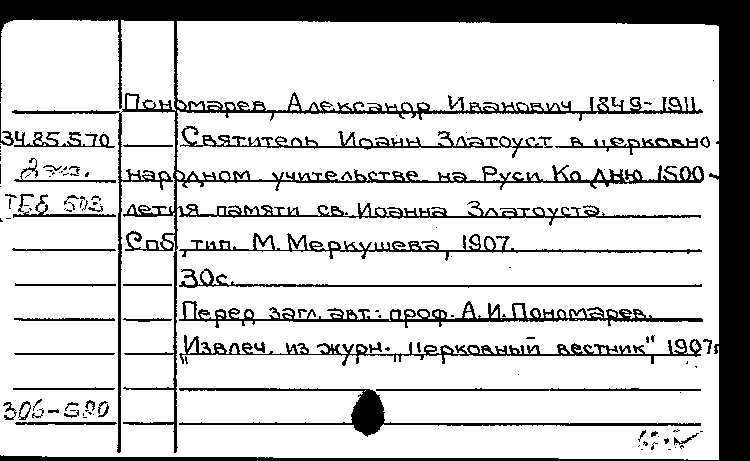 Пономарев, Александр Иванович, 1849-1911.
34.85.5.70 Святитель Иоанн Златоуст в церковно-
2 экз. народном учительстве на Руси. Ко дню 1500-
летия памяти св. Иоанна Златоуста.
Спб, тип. М. Меркушева, 1907.
30с.
Перед загл. авт.: проф. А.И. Пономарев.
"Извлеч. из журн. "Церковный вестник", 1907г